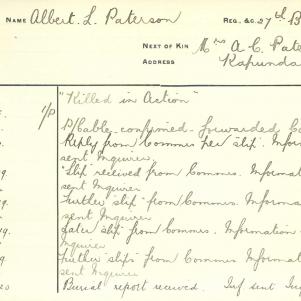 NAME Albert L. Paterson REG. &C. 27th B
NEXT OF KIN Mrs A. C. Pate
ADDRESS Kapunda
1/P "Killed in Action"
P/Cable confirmed - forwarded
Reply from Commrs per slip. Informa
sent Inquirer
9. "Slip" received from Commrs. Informatio
sent Inquirer
Further "slip" from Commrs. Informatio
sent Inquirer
19. Later slip from Commrs. Information
Inquirer
19. Further "slips" from Commrs. Informati
sent Inquirer
20 Burial report received. Inf sent Inq